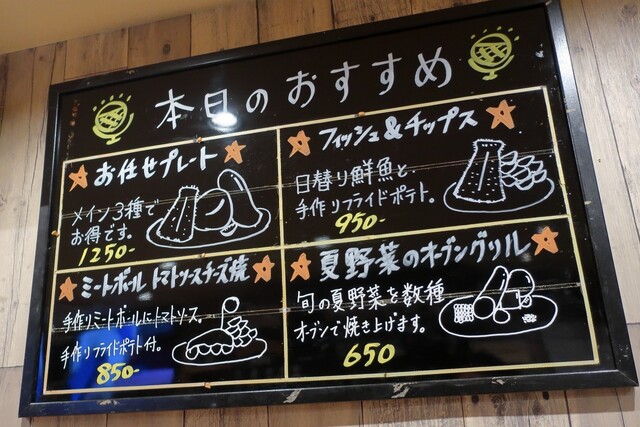 本日のおすすめ
お任せプレート
メイン3種で
お得です。
1250-
フィッシュ&チップス
日替り鮮魚と、
手作りフライドポテト。
950-
ミートボール トマトソースチーズ焼
手作りミートボールにトマトソース。
手作りフライドポテト付。
850-
夏野菜のオーブングリル
旬の夏野菜を数種
オーブンで焼き上げます。
650